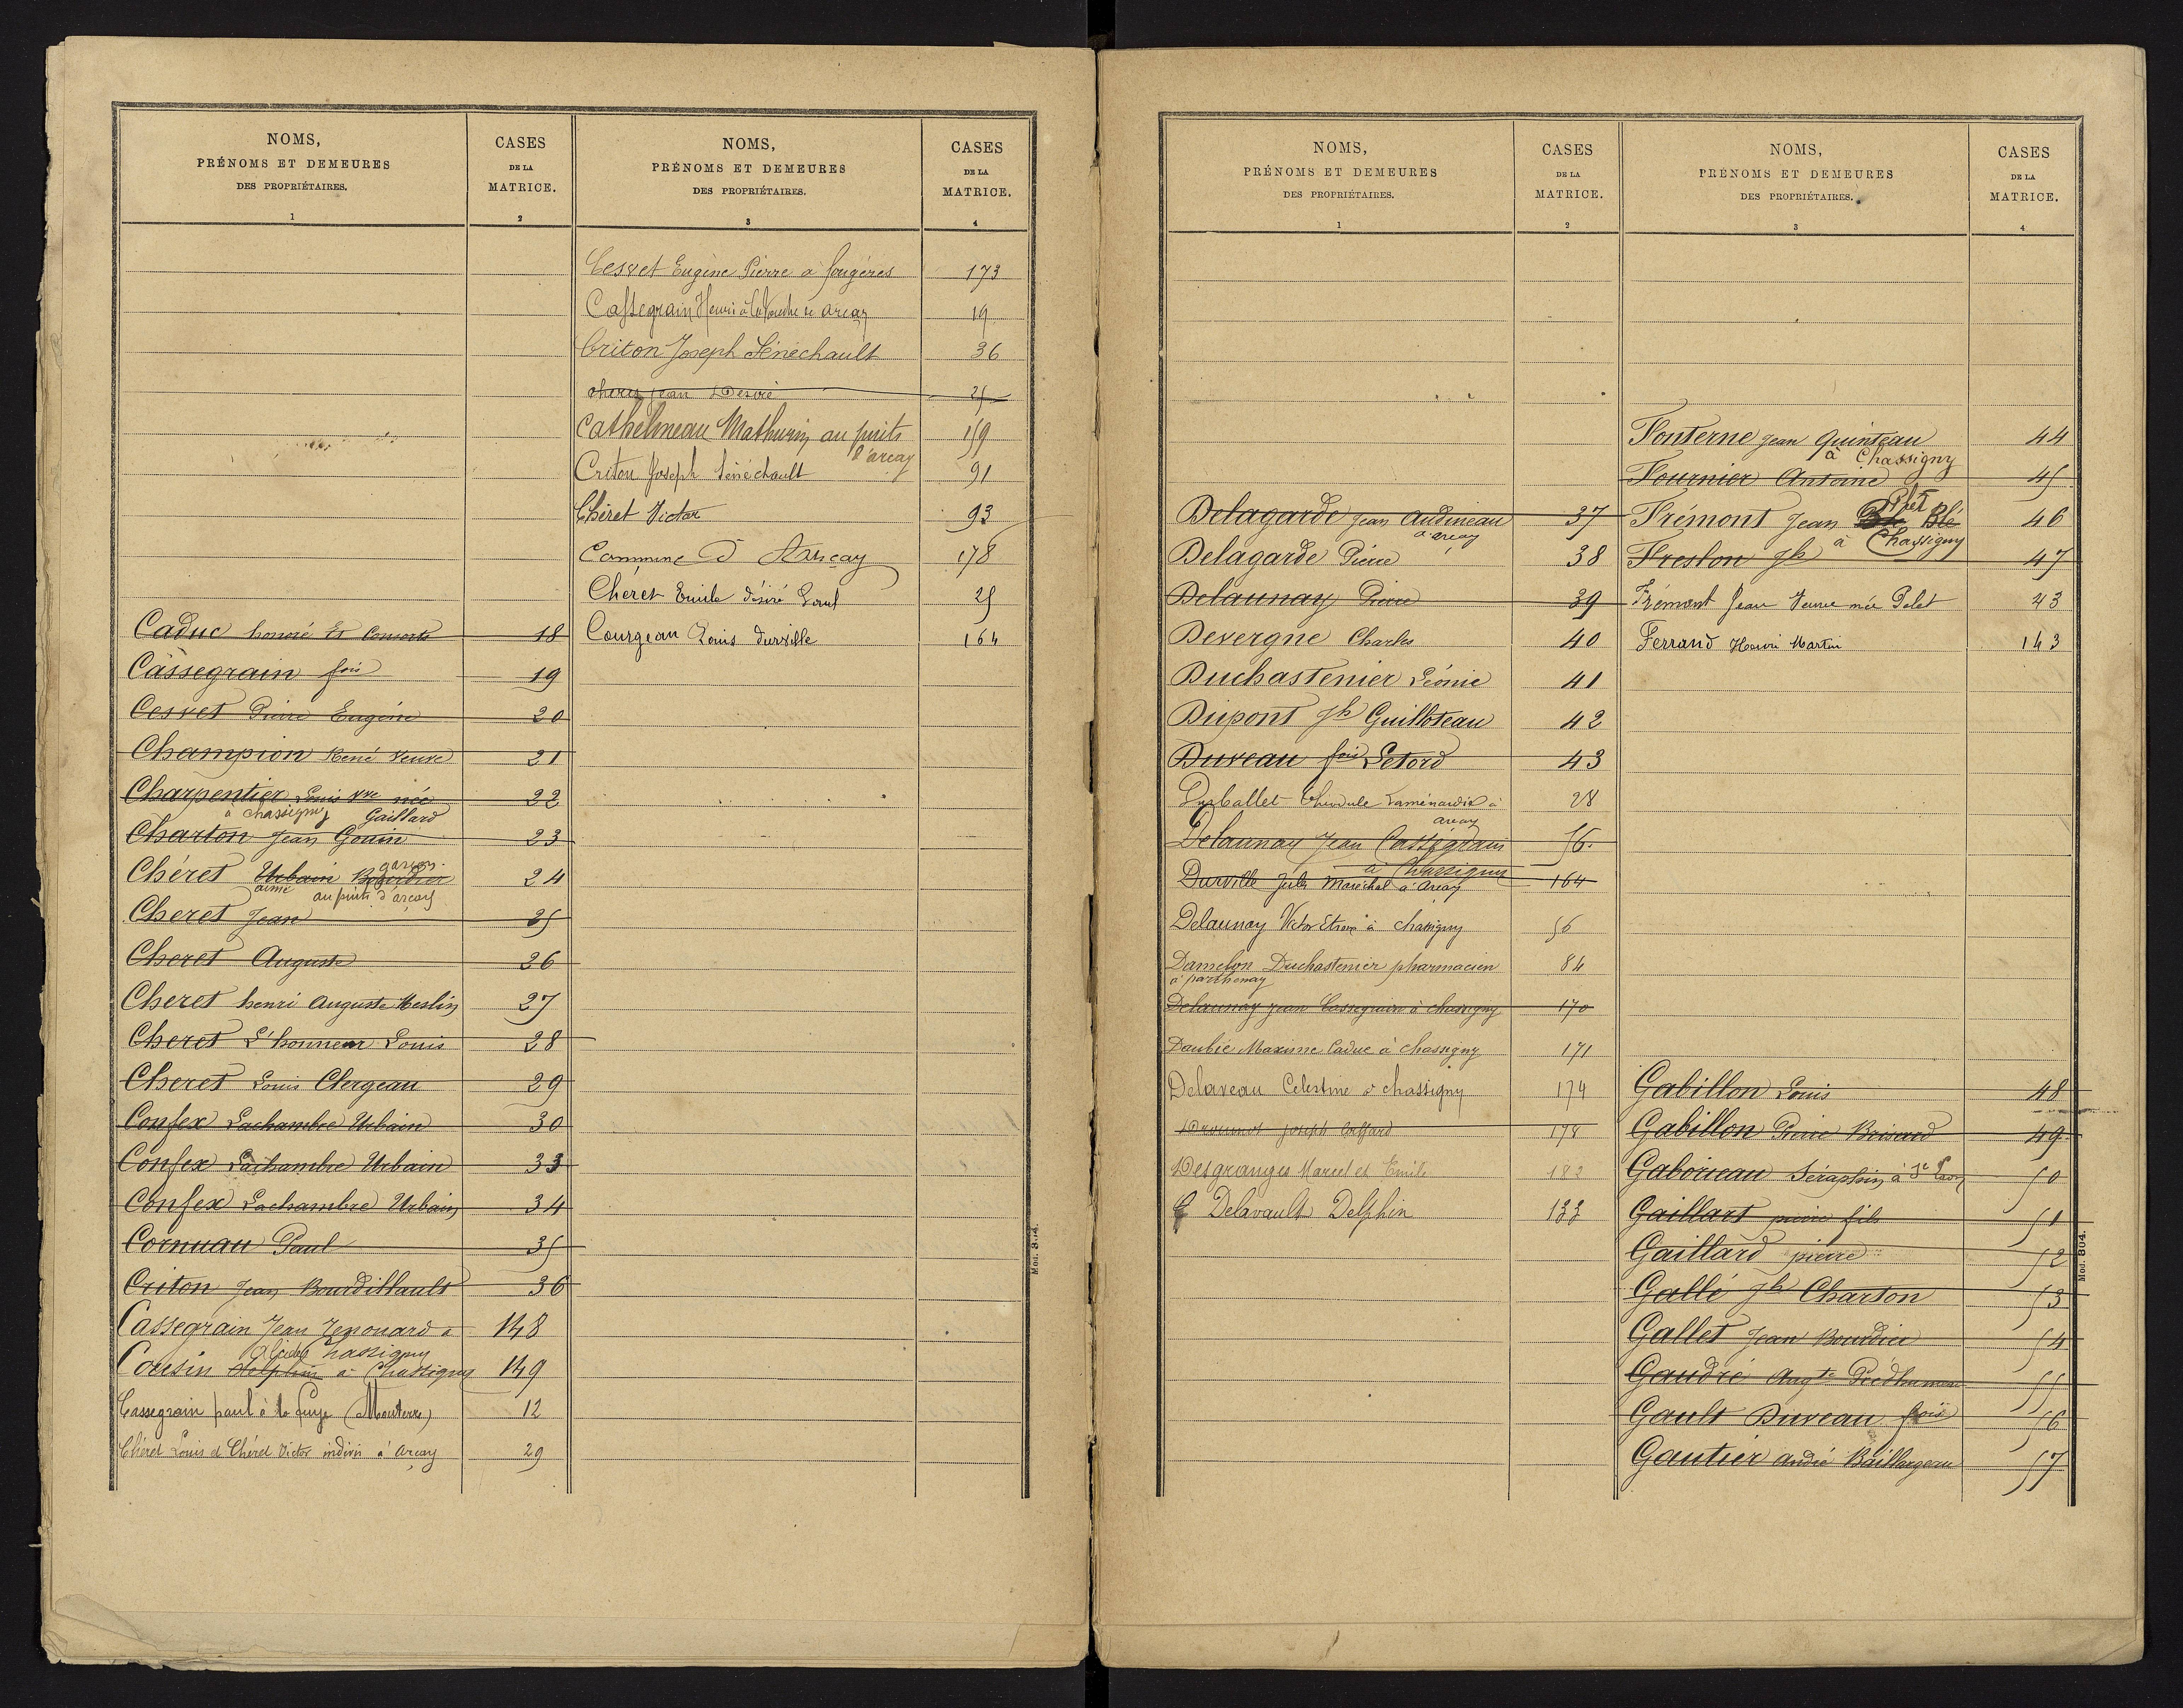 NOMS,
PRÉNOMS ET DEMEURES
DES PROPRIÉTAIRES.
1
CASES
DE LA
MATRICE.
2
Caduc honoré et Consorts 18
Cassegrain fois 19
Cesvet Pierre Eugène 20
Champion René veuve 21
Charpentier Louis vve née 22
à chassigny Gaillard
Charton Jean Gouin 23
garçon
Chéret Urbain Bourdier 24
aimé au puits d'arçay
Cheret Jean 25
Cheret Auguste 26
Cheret henri Auguste Meslin 27
Cheret L'honneur Louis 28
Cheret Louis Clergeau 29
Confex Lachambre Urbain 30
Confex Lachambre Urbain 33
Confex Lachambre Urbain 34
Cornuau Paul 35
Criton Jean Bourdillault 36
Cassegrain Jean Renouard a 148
Alcide Chassigny
Cousin Delphin à Chassigny 149
Cassegrain paul à la (Mouterre) 12
Chéret Louis et Chéret Victor indivis à Arçay 29
NOMS,
PRÉNOMS ET DEMEURES
DES PROPRIÉTAIRES.
3
CASES
DE LA
MATRICE.
4
Cesvet Eugène Pierre a fougères 173
Cassegrain Henri à arçay 19
Criton Joseph Sénéchault 36
cheret jean Désiré 25
Cathelineau Mathurin au puits 159
d'arçay
Criton Joseph Sénéchault 91
Chéret Victor 93
Commune d'Arçay 178
Chéret Emile désiré Paul 25
Courgeau Louis Durville 164
Mod. 804.
NOMS,
PRÉNOMS ET DEMEURES
DES PROPRIÉTAIRES.
1
CASES
DE LA
MATRICE.
2
Delagarde Jean Audineau 37
a arçay
Delagarde Pierre 38
Delaunay Pierre 39
Devergne Charles 40
Duchastenier Léonie 41
Dupont Jh Guilloteau 42
Duveau fois Letord 43
à 28
arçay
Delaunay Jean Cassegrain 56.
à Chassigny
Durville Jules Maréchal à Arçay 164
Delaunay Victor à chassigny 56
Damelon Duchastenier pharmacien 84
à parthenay
Delaunay Jean Cassegrain à chassigny 170
Daubié Maxime Caduc à chassigny 171
Delaveau Celestine à chassigny 174
joseph 178
Desgranges Marcel et Emile 182
Delavault Delphin 133
NOMS,
PRÉNOMS ET DEMEURES
DES PROPRIÉTAIRES.
3
CASES
DE LA
MATRICE.
4
Fonterne Jean Quinteau 44
à Chassigny
Fournier Antoine 45
Frémont Jean Blé 46
à Chassigny
Freslon Jh 47
Frémont Jean Veuve née Pelet 43
Ferrand Henri Martin 143
Gabillon Louis 48
Gabillon Pierre Brisard 49
Gaborieau Séraphin à St Laon 50
Gaillart pierre fils 51
Gaillard pierre 52
Gallé Jh Charton 53
Gallet Jean Bourdier 54
Gaudré Augte 55
Gault Duveau fois 56
Gautier André Baillargeau 57
Mod. 804.